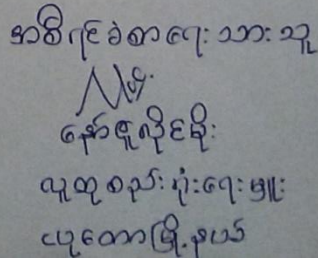 အစီရင်ခံစာရေးသားသူ
နော်ဇူလိုင်မိုး
လူထုစည်းရုံးရေးမှူး
ငပုတောမြို့နယ်